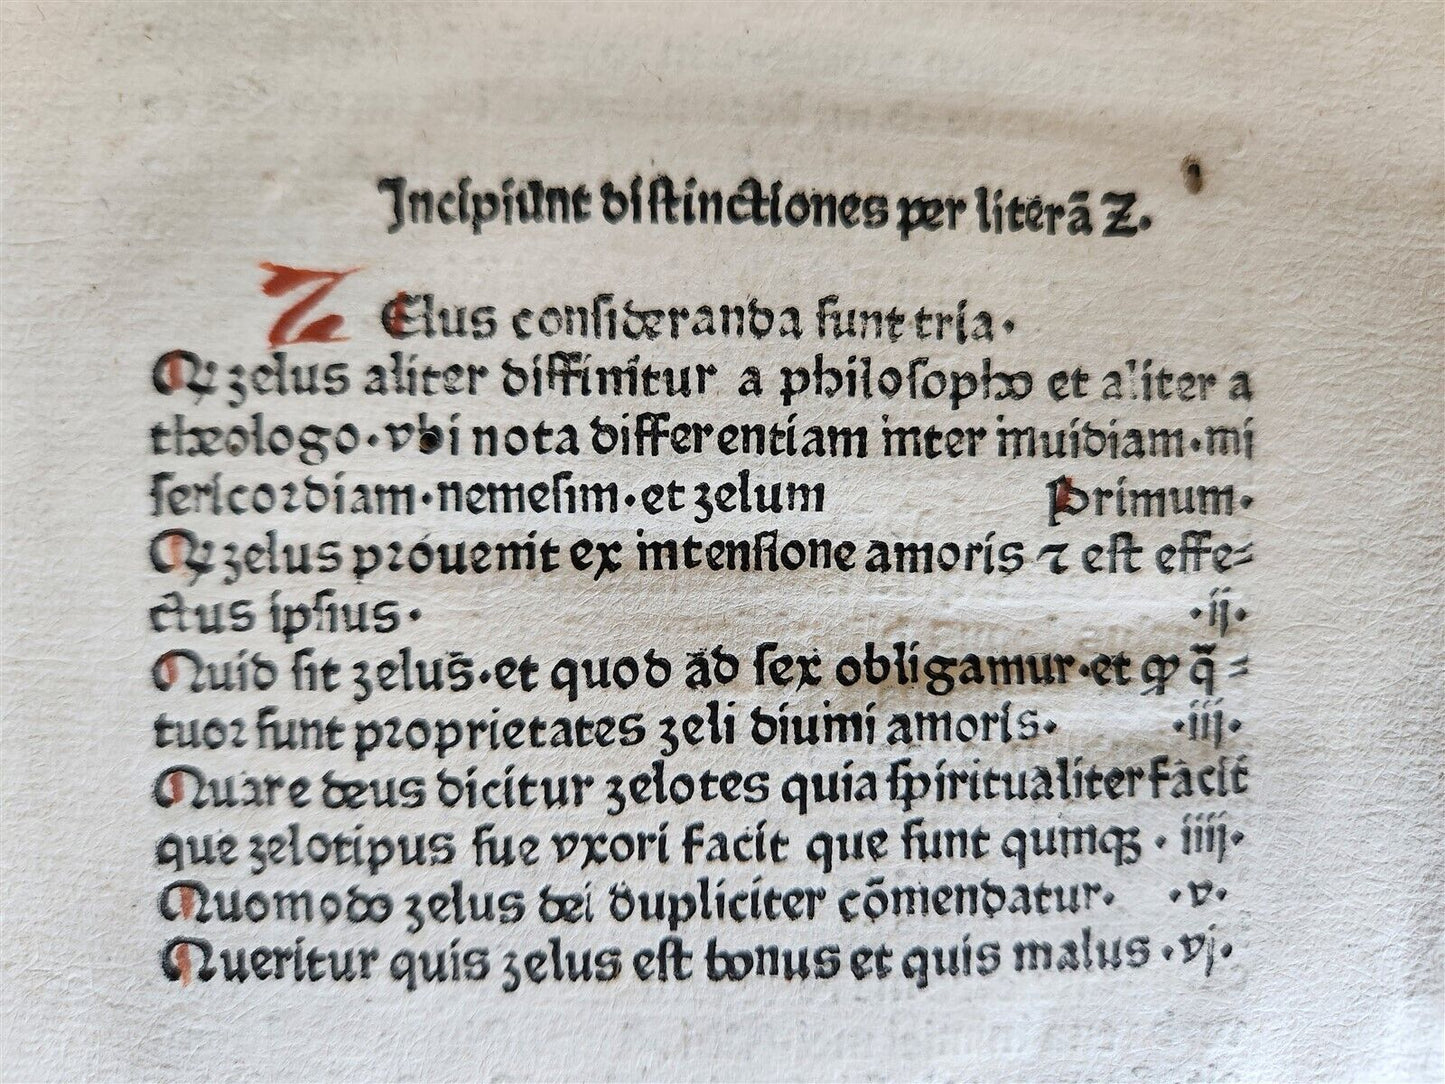 Incipiūnt distinctiones per literā Z.
ZElus consideranda sunt tria.
Qꝫ zelus aliter diffinitur a philosopho et aliter a
theologo·vbi nota differentiam inter inuidiam·mi
sericordiam·nemesim·et zelum Primum·
Qꝫ zelus prouenit ex intensione amoris ⁊ est effe⸗
ctus ipsius· ·ij·
Quid sit zelus·et quod ad sex obligamur·et ꝙ q̄⸗
tuor sunt proprietates zeli diuini amoris· ·iij·
Quare deus dicitur zelotes quia spiritualiter facit
que zelotipus sue vxori facit que sunt quinqꝫ·iiij·
Quomodo zelus dei dupliciter cōmendatur· ·v·
Queritur quis zelus est bonus et quis malus·vj·